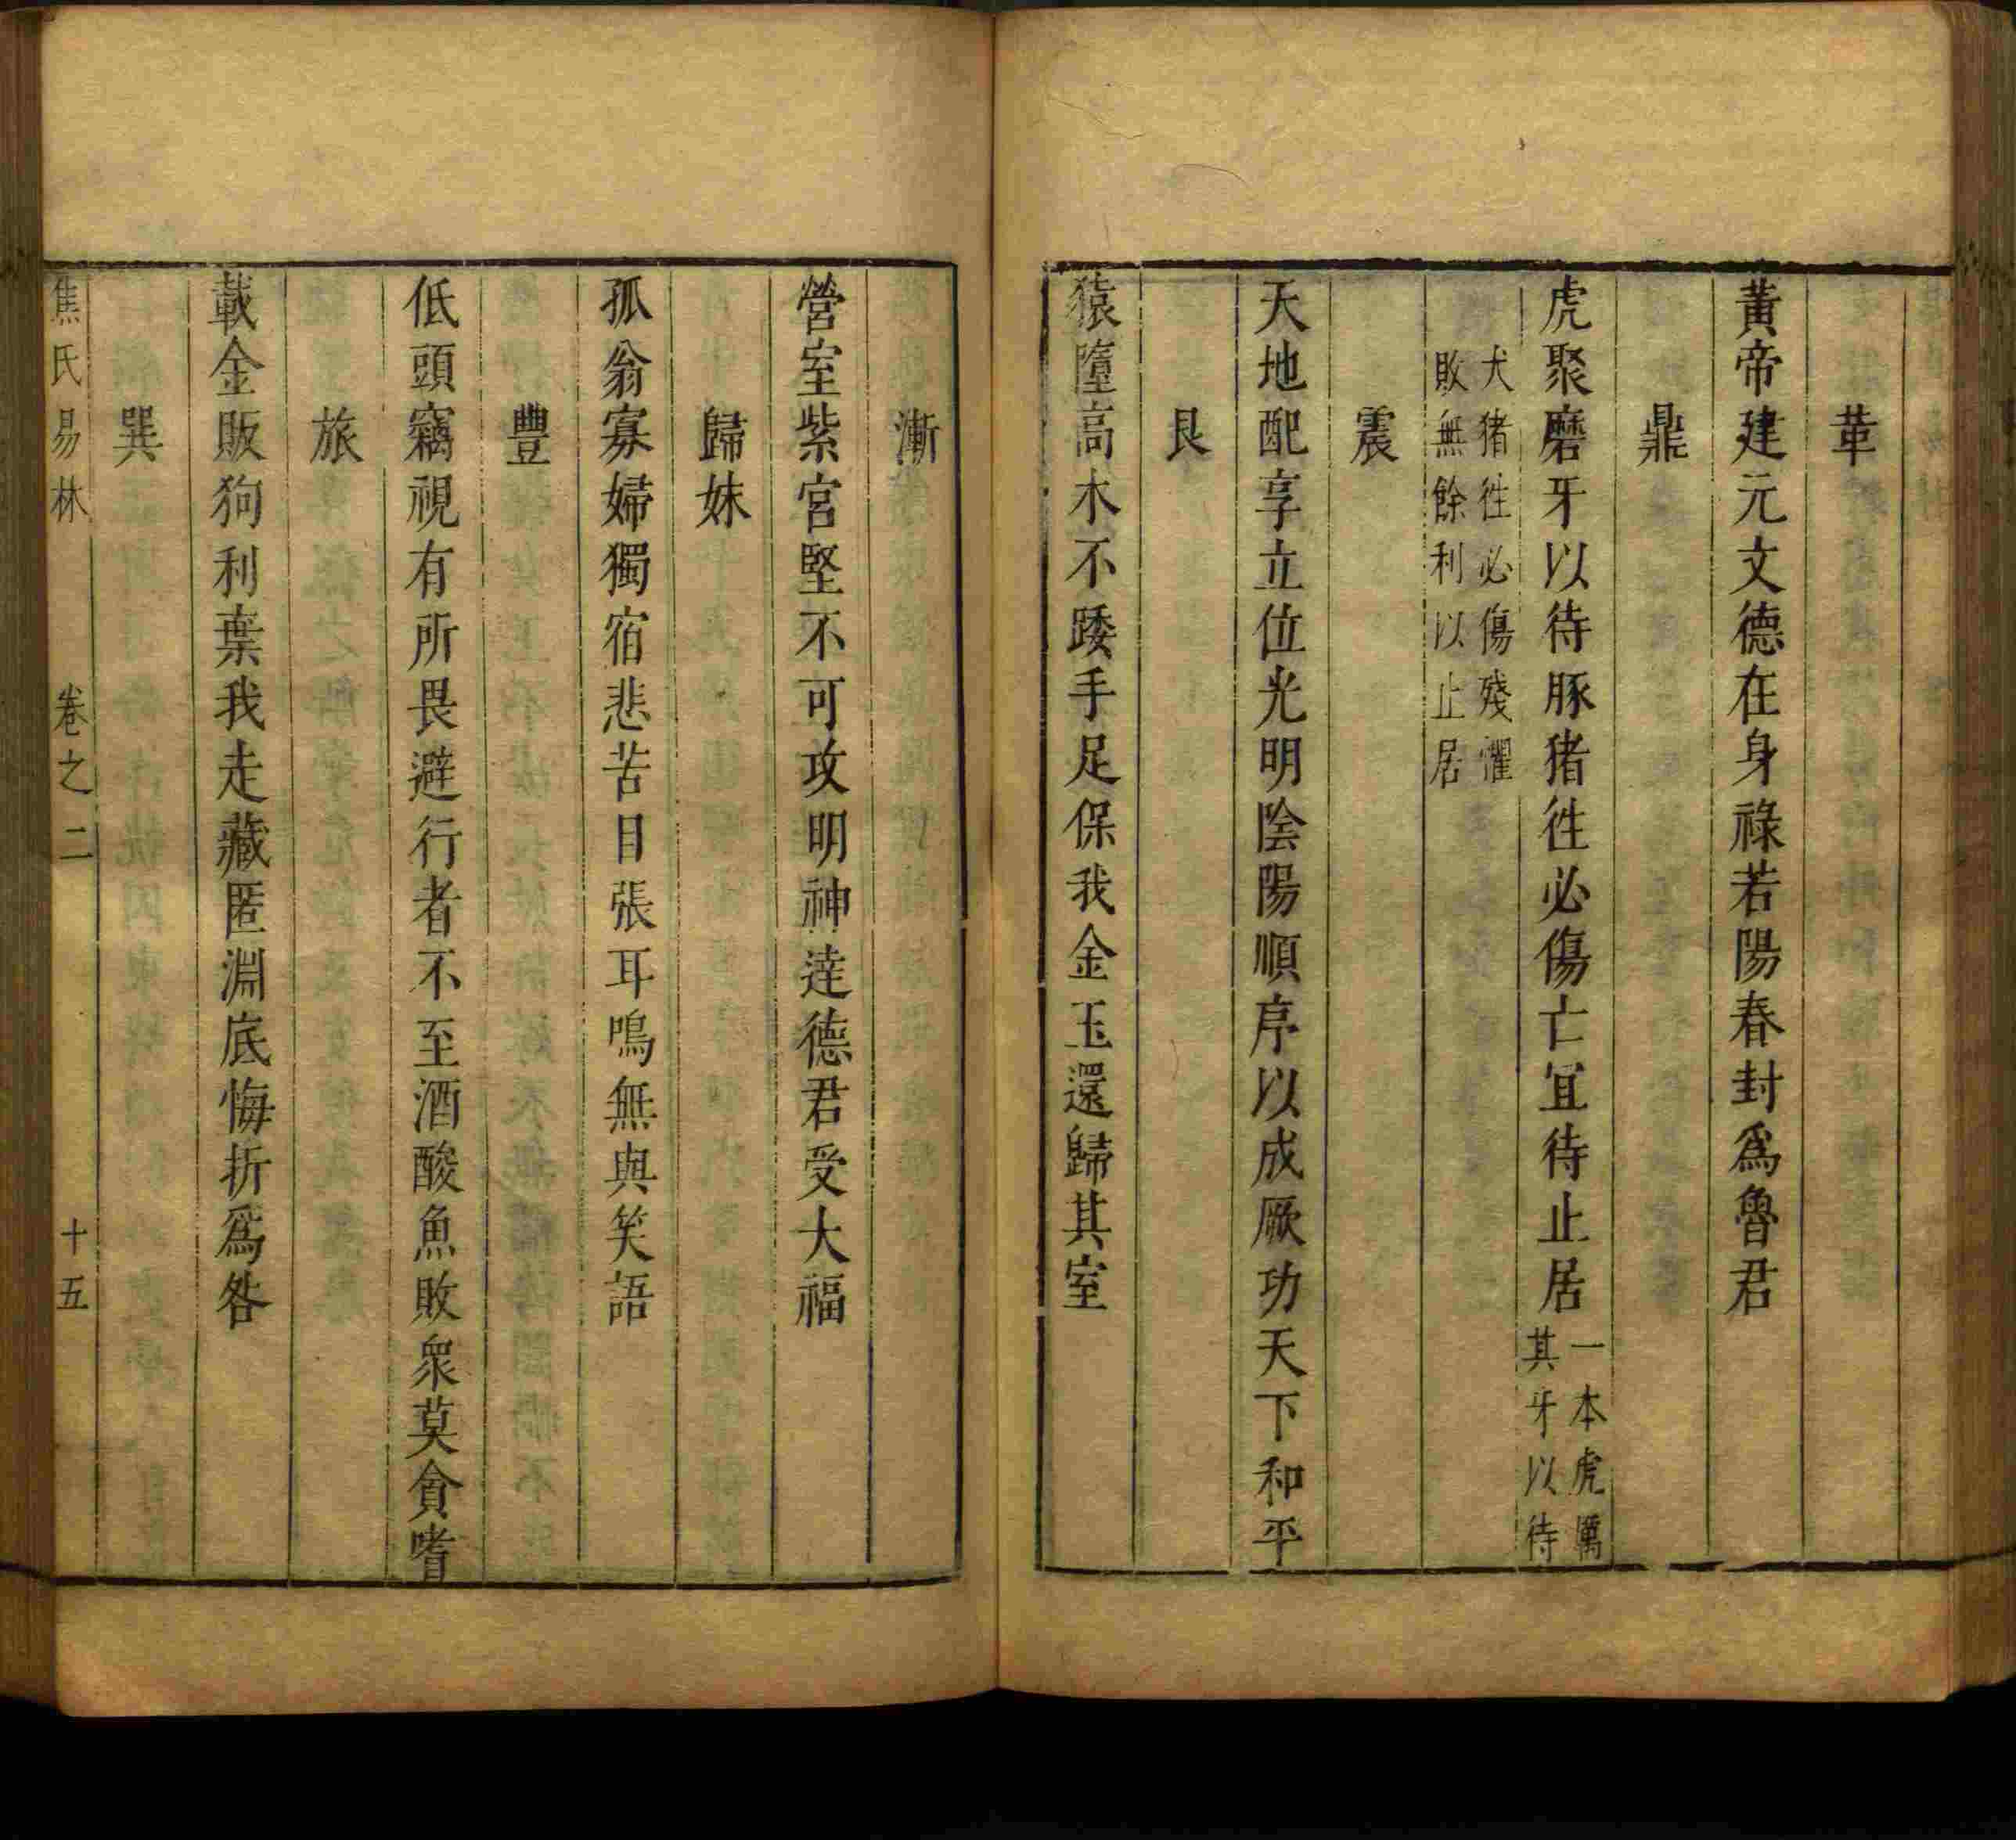 革
黃帝建元文德在身祿若陽春封爲魯君
鼎
虎聚磨牙以待豚猪徃必傷亡宜待止居一本虎厲其牙以待
犬猪徃必傷殘懼敗無餘利以止居
震
天地配享立位光明陰陽順序以成厥功天下和平
艮
猿墮高木不踒手足保我金玉還歸其室
漸
營室紫宮堅不可攻明神逹德君受大福
歸妹
孤翁寡婦獨宿悲苦目張耳鳴無與笑語
豐
低頭竊視有所畏避行者不至酒酸魚敗衆莫貪嗜
旅
載金販狗利葉我走藏匿淵底悔折爲咎
巽
焦氏易林 卷之二 十五